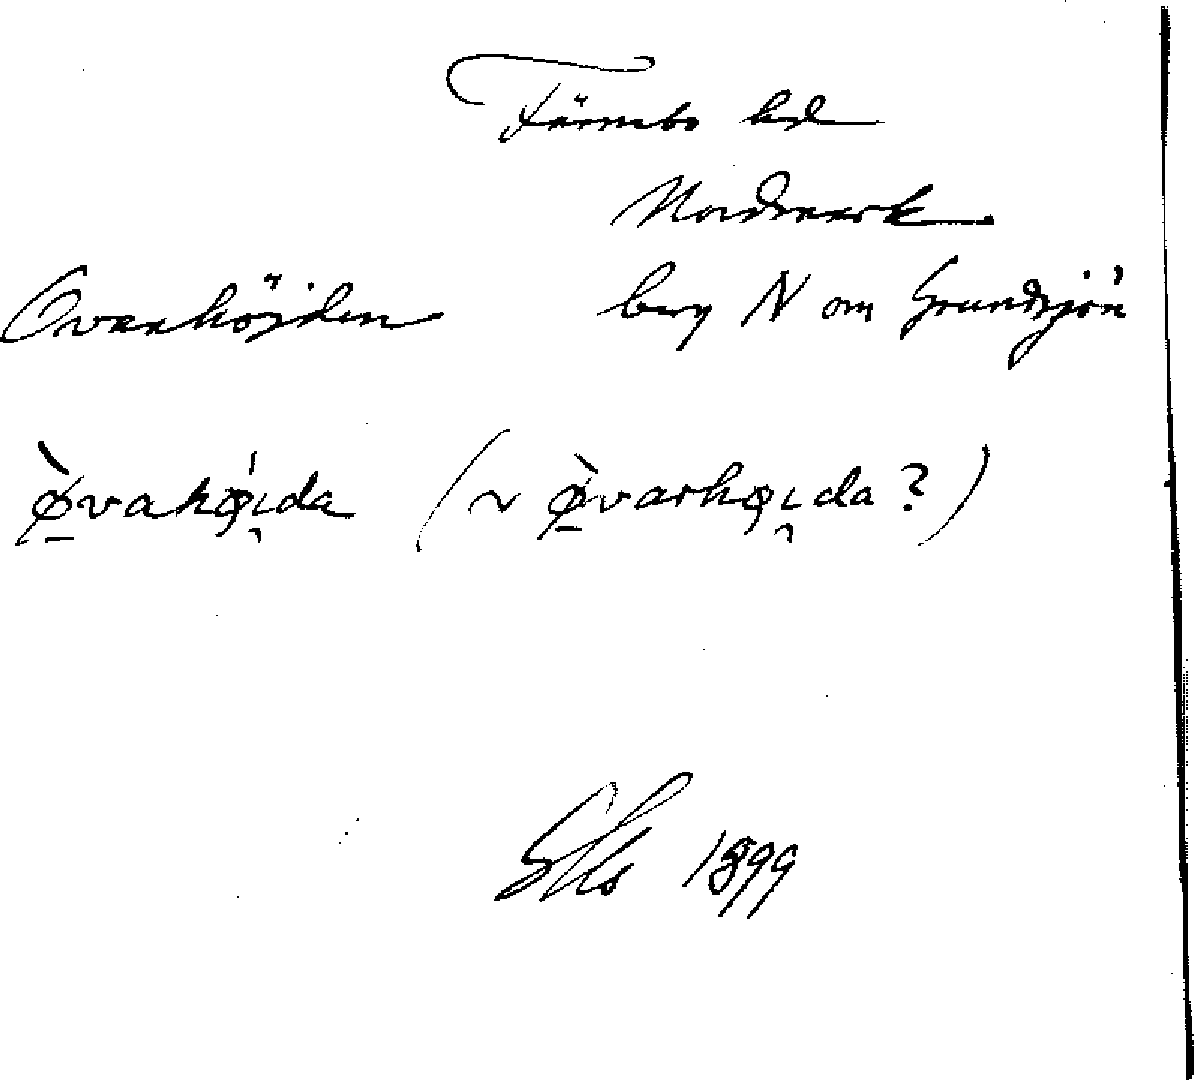 Färnebo hd
Nordmark
Overhöjden berg N om Grundsjön
ø̱̀vahφ̍ı̯da (v ø̱̀varhφı̯da?)
1899